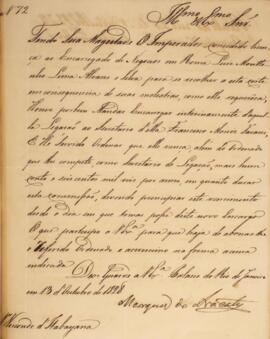 N.º 72
Illmo. Exmo. Snr.
Tendo Sua Magestade O Imperador concedido licença
ao Encarregado de Negocios em Roma Luiz Moutinho
Lima Alvares e Silva para se recolher a esta corte
em consequencia de suas molestias, como elle requerêra;
Houve por bem Mandar encarregar interinamente daquella
Legação ao Secretario d'ella Francisco Muniz Tavares.
E He Servido Ordenar que elle vença, alem do Ordenado
que lhe compete, como Secretario de Legação, mais hum
conto e seiscentos mil reis por anno, em quanto durar
esta commissão, devendo principiar este vencimento
desde o dia em que tomar posse deste novo Encargo.
O que participo a V. Sª para que haja de abonar lhe
o referido Ordenado e accrescimo na forma acima
indicada.
Deos Guarde a V. Sª Palacio do Rio de Janeiro
em 13 d'Outubro de 1828
Marquez de Aracaty
Visconde d'Itabayana